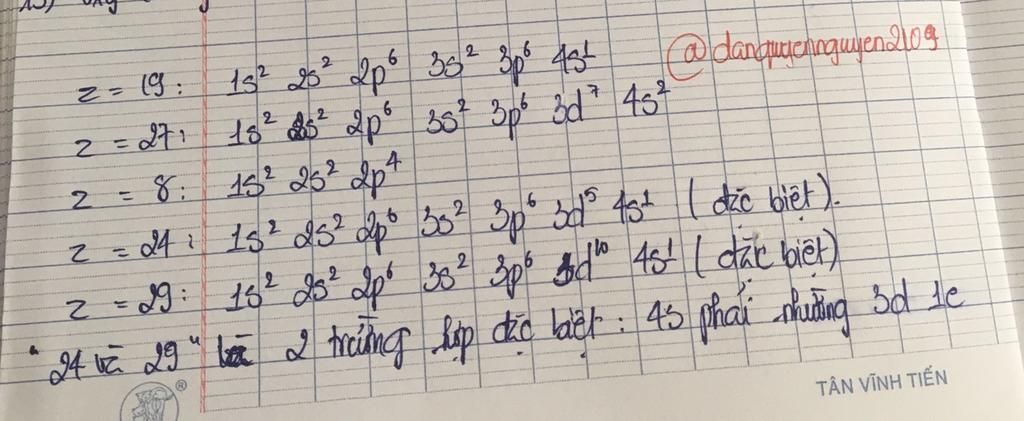 z = 19: 1s² 2s² 2p⁶ 3s² 3p⁶ 4s¹
@danquyennguyen2109
z = 27: 1s² 2s² 2p⁶ 3s² 3p⁶ 3d⁷ 4s²
z = 8: 1s² 2s² 2p⁴
z = 24: 1s² 2s² 2p⁶ 3s² 3p⁶ 3d⁵ 4s¹ (đặc biệt).
z = 29: 1s² 2s² 2p⁶ 3s² 3p⁶ 3d¹⁰ 4s¹ (đặc biệt)
"24 và 29" là 2 trường hợp đặc biệt: 4s phải nhường 3d 1e
TÂN VĨNH TIẾN